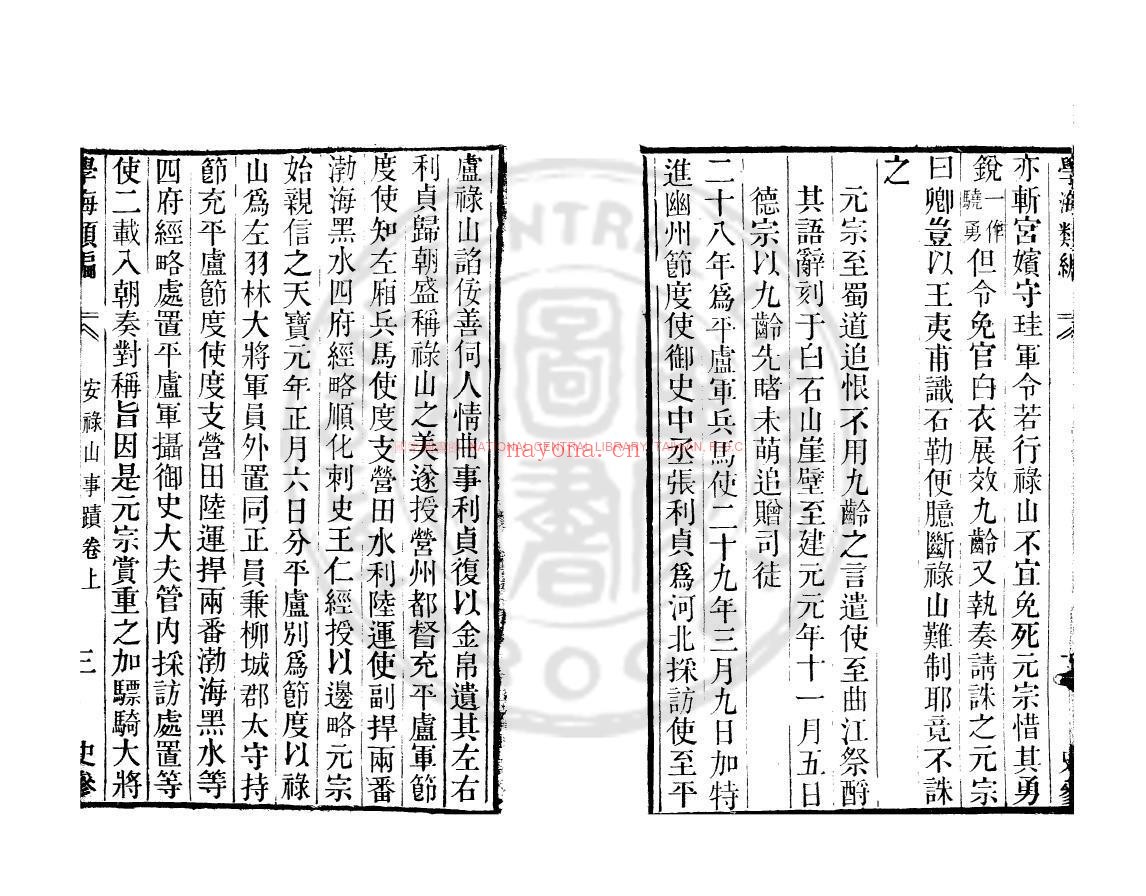 學海類編
亦斬宮嬪守珪軍令若行祿山不宜免死元宗惜其勇
銳一作驍勇但令免官白衣展效九齡又執奏請誅之元宗
曰卿豈以王夷甫識石勒便臆斷祿山難制耶竟不誅
之
元宗至蜀道追恨不用九齡之言遣使至曲江祭酹
其語辭刻于白石山崖壁至建元元年十一月五日
德宗以九齡先睹未萌追贈司徒
二十八年爲平盧軍兵馬使二十九年三月九日加特
進幽州節度使御史中丞張利貞爲河北採訪使至平
盧祿山諂佞善伺人情曲事利貞復以金帛遺其左右
利貞歸朝盛稱祿山之美遂授營州都督充平盧軍節
度使知左廂兵馬使度支營田水利陸運使副押兩番
渤海黑水四府經略順化刺史王仁經授以邊略元宗
始親信之天寶元年正月六日分平盧別爲節度以祿
山爲左羽林大將軍員外置同正員兼柳城郡太守持
節充平盧節度使度支營田陸運捍兩番渤海黑水等
四府經略處置平盧軍攝御史大夫管內採訪處置等
使二載入朝奏對稱旨因是元宗賞重之加驃騎大將
學海類編 安祿山事蹟卷上 三 史參
NATIONAL CENTRAL LIBRARY, TAIWAN, R.O.C
nayona.cn